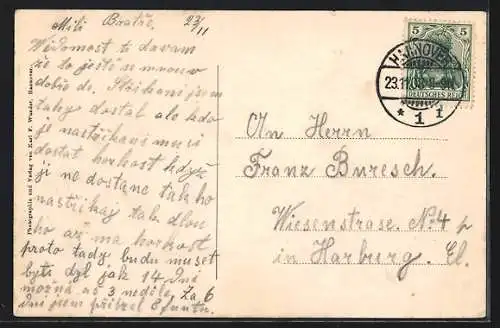 Milí Bratře. 23/11
Wědomost ti davam
že do ještě se mnou
dobře do. Stříkani jsem
taky dostal ale kdo
je nastříkani musi
dostat horkost když
ji ne dostane tak ho
nastříkaj tak dlou
ho až ma horkost
proto tady budu muset
byti dyl jak 14 dni
možna až 3 neděle. Za 6
dni jsem přibral 8 funtu.
Photographie und Verlag von Karl F. Wunder, Hannover.
5 5
DEUTSCHES REICH
HANNOVER
23.11
* 1 1
An Herrn
Franz Buresch
Wiesenstrase. No. 4 p
in Harburg. El.